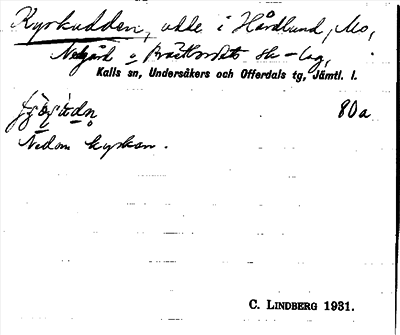 Kyrkudden, udde i Hårdlund, Mo,
Nedgård o skr-lag,
Kalls sn, Undersåkers och Offerdals tg, Jämtl. l.
80a
Nedom kyrkan.
C. LINDBERG 1931.